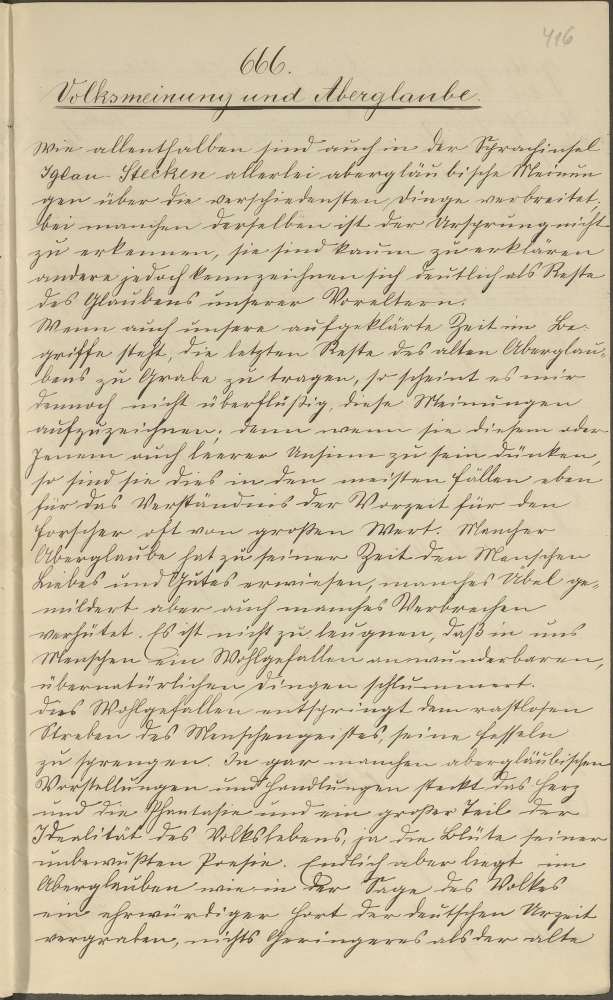 416
666.
Volksmeinung und Aberglaube.
Wie allenthalben sind auch in der Sprachinsel
Iglau-Stecken allerlei abergläubische Meinun
gen über die verschiedensten Dinge verbreitet;
bei manchen derselben ist der Ursprung nicht
zu erkennen, sie sind kaum zu erklären
andere jedoch kennzeichnen sich deutlich als Reste
des Glaubens unserer Voreltern.
Wenn auch unsere aufgeklärte Zeit im Be-
griffe steht, die letzten Reste des alten Aberglau-
bens zu Grabe zu tragen, so scheint es mir
dennoch nicht überflüßig, diese Meinungen
aufzuzeichnen; denn wenn sie diesem oder
Jenem auch leerer Unsinn zu sein dünken,
so sind sie dies in den meisten Fällen eben
für das Verständnis der Vorzeit für den
Forscher oft von großen Wert. Mancher
Aberglaube hat zu seiner Zeit den Menschen
Liebes und Gutes erwiesen, manches Übel ge-
mildert aber auch manches Verbrechen
verhütet. Es ist nicht zu leugnen, daß in uns
Menschen ein Wohlgefallen an wunderbaren,
übernatürlichen Dingen schlummert.
Dies Wohlgefallen entspringt dem rastlosen
Streben des Menschengeistes, seine Fesseln
zu sprengen. In gar manchen abergläubischen
Vorstellungen und Handlungen steckt das Herz
und die Phantasie und ein großer Teil der
Idealität des Volkslebens, ja die Blüte seiner
unbewußten Poesie. Endlich aber liegt im
Aberglauben wie in der Sage des Volkes
ein ehrwürdiger Hort der deutschen Urzeit
vergraben, nichts Geringeres als der alte